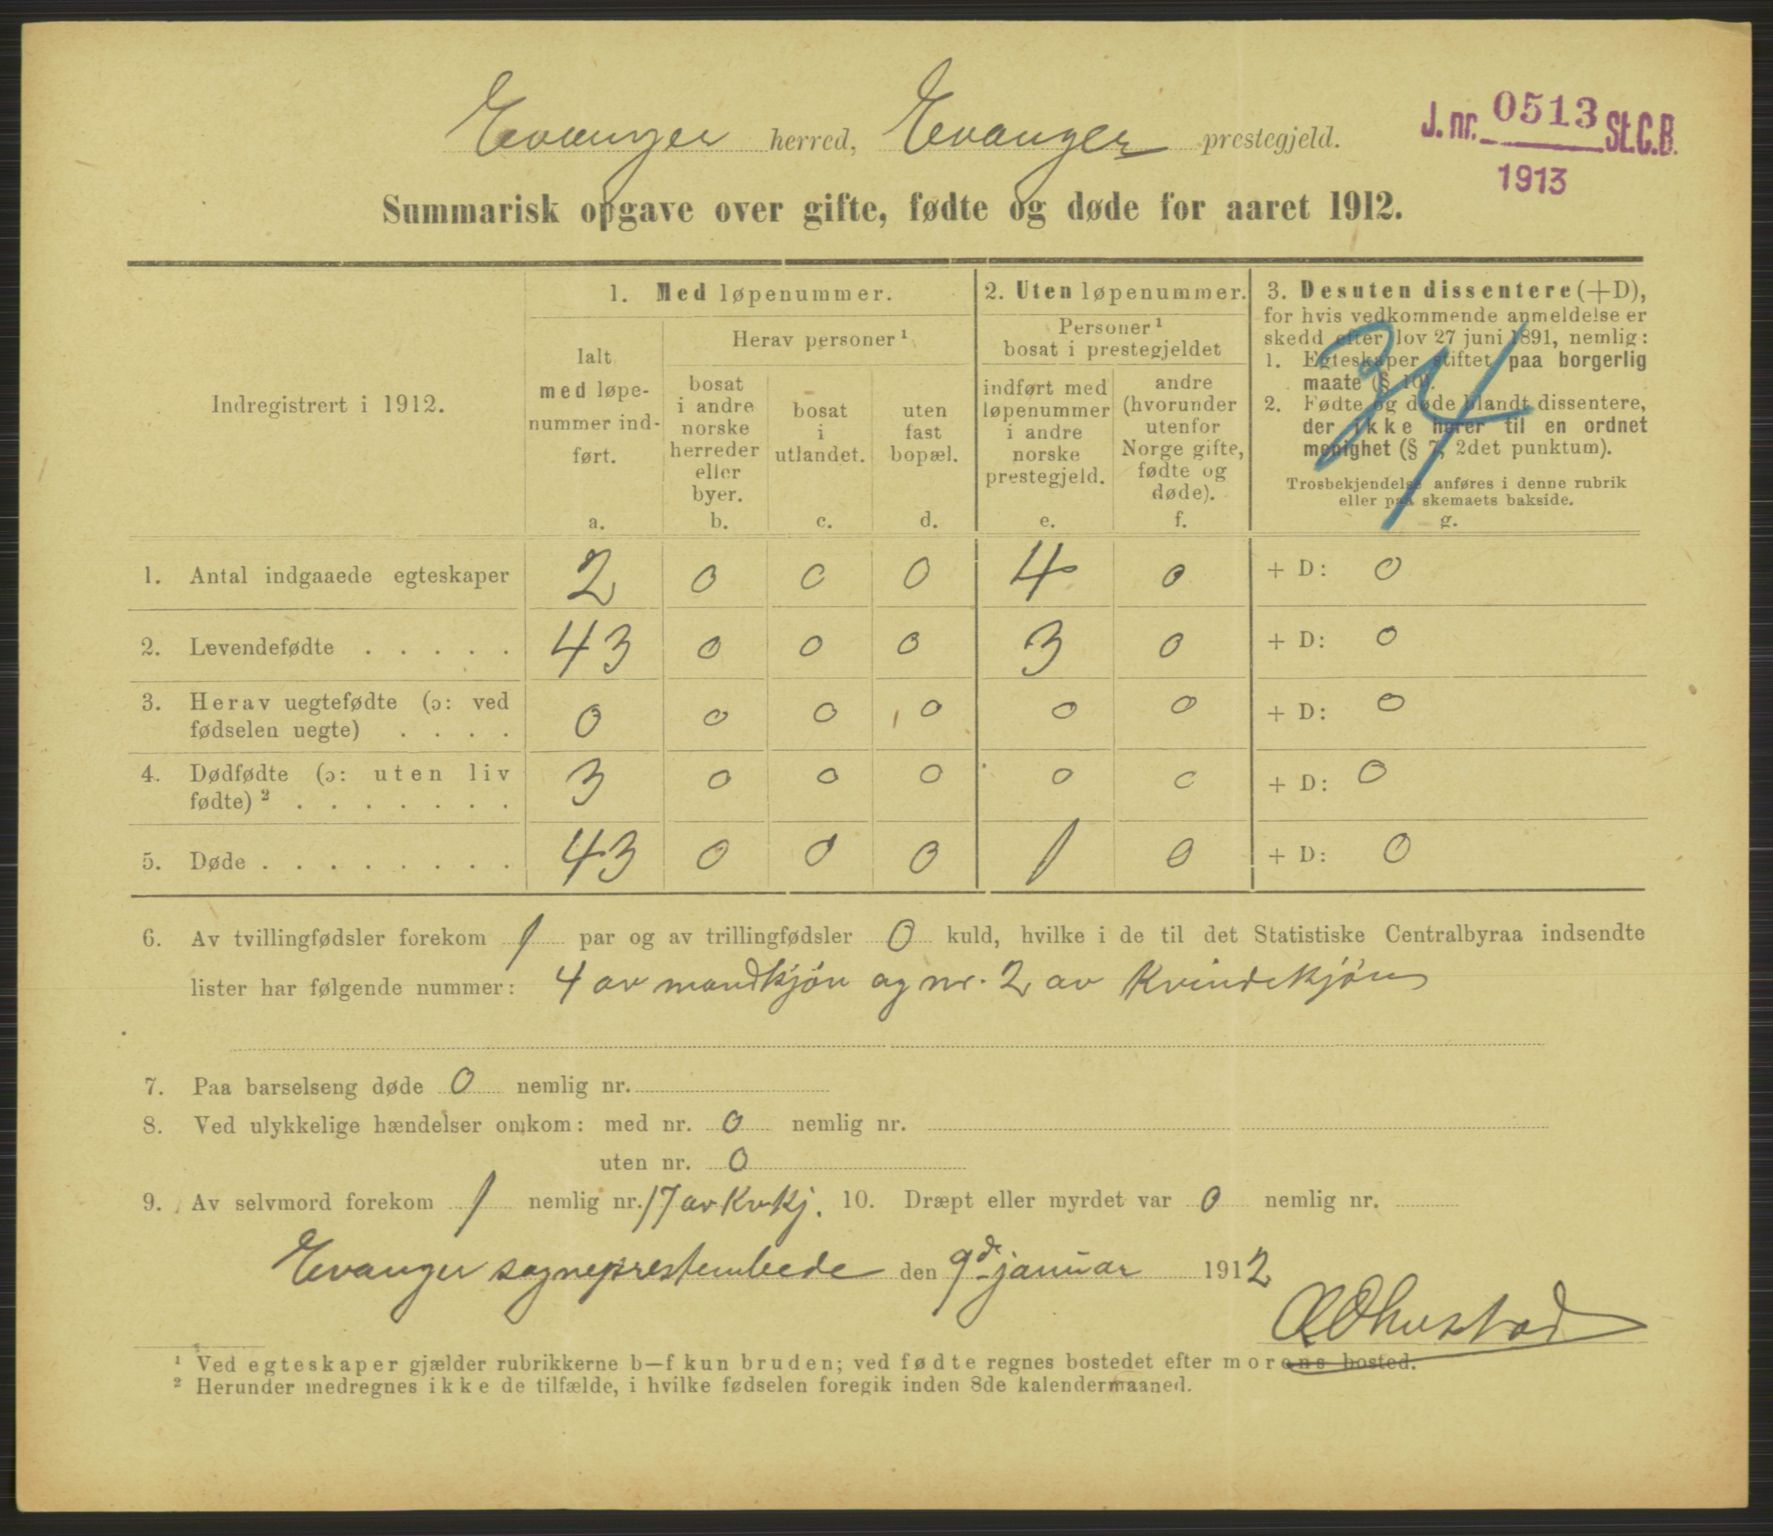 Evanger herred, Evanger prestegjeld.
J. nr. 0513 St.C.B.
1913
Summarisk opgave over gifte, fødte og døde for aaret 1912.
Indregistrert i 1912.
1. Med løpenummer.
Ialt
med løpe-
nummer ind-
ført.
a.
Herav personer¹
bosat
i andre
norske
herreder
eller
byer.
b.
bosat
i
utlandet.
c.
uten
fast
bopæl.
d.
2. Uten løpenummer.
Personer¹
bosat i prestegjeldet
indført med
løpenummer
i andre
norske
prestegjeld.
e.
andre
(hvorunder
utenfor
Norge gifte,
fødte og
døde).
f.
3. Desuten dissentere (+D),
for hvis vedkommende anmeldelse er
skedd efter lov 27 juni 1891, nemlig:
1. Egteskaper stiftet paa borgerlig
maate (§ 10).
2. Fødte og døde blandt dissentere,
der ikke hører til en ordnet
menighet (§ 7, 2det punktum).
Trosbekjendelse anføres i denne rubrik
eller paa skemaets bakside.
g.
1. Antal indgaaede egteskaper 2 0 0 0 4 0 + D: 0
2. Levendefødte . . . . . 43 0 0 0 3 0 + D: 0
3. Herav uegtefødte (ɔ: ved
fødselen uegte) . . . . 0 0 0 0 0 0 + D: 0
4. Dødfødte (ɔ: uten liv
fødte)² . . . . . . . 3 0 0 0 0 0 + D: 0
5. Døde . . . . . . . . 43 0 0 0 1 0 + D: 0
6. Av tvillingfødsler forekom 1 par og av trillingfødsler 0 kuld, hvilke i de til det Statistiske Centralbyraa indsendte
lister har følgende nummer: 4 av mandkjøn og nr. 2 av Kvindekjøn
7. Paa barselseng døde 0 nemlig nr.
8. Ved ulykkelige hændelser omkom: med nr. 0 nemlig nr.
uten nr. 0
9. Av selvmord forekom 1 nemlig nr. 17 av Kvkj. 10. Dræpt eller myrdet var 0 nemlig nr.
Evanger sogneprestembede den 9d januar 1912
¹ Ved egteskaper gjælder rubrikkerne b—f kun bruden; ved fødte regnes bostedet efter morens bosted.
² Herunder medregnes ikke de tilfælde, i hvilke fødselen foregik inden 8de kalendermaaned.